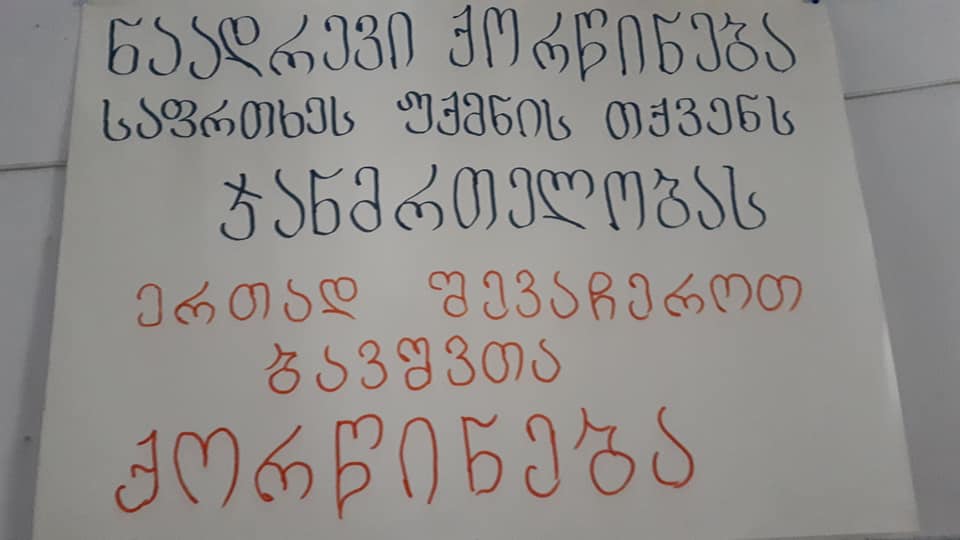 ნაადრევი ქორწინება
საფრთხეს უქმნის თქვენს
ჯანმრთელობას
ერთად შევაჩეროთ
ბავშვთა
ქორწინება